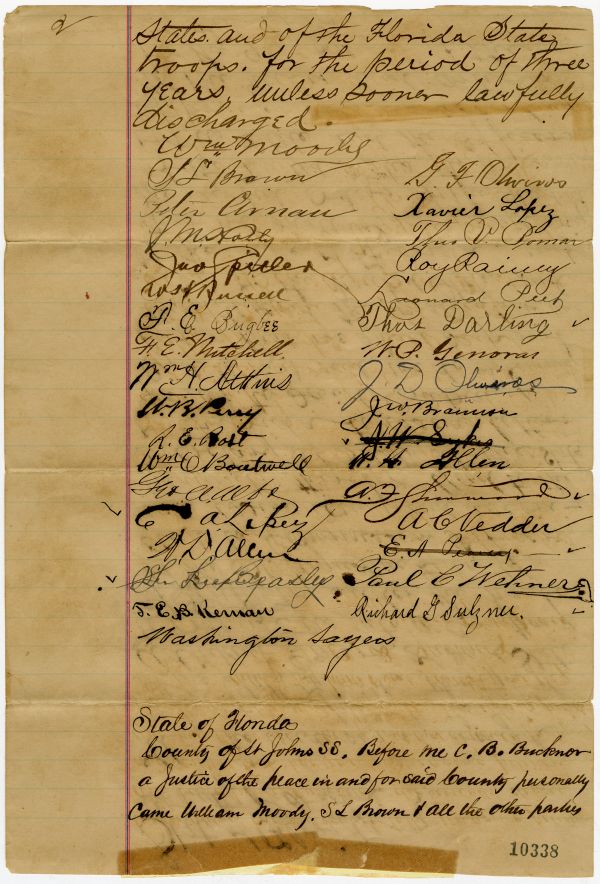 2
States. and of the Florida State
troops. for the period of three
years, unless sooner lawfully
discharged.
Wm Moody
S L Brown
Peter Arnau
Jno
Russell
F. E. Bugbee
F. E. Mitchell.
Wm H. Attkis
W. B. Perry
R. E. Bost
Wm C Boutwell
Geo
W D Allen
Beasley
T. E. B. Kernan
Washington Sayers
G F Oliveros
Xavier Lopez
Thos V. Pomar
Roy Rainey
Leonard
Thos Darling
W. P. Genovar
J D Oliveros
J W. Brannon
J. W. Sykes
W. H. Allen
A C Vedder
E A
Paul C Wehner
Richard G Sulzner.
State of Florida
County of St Johns SS. Before me C. B. Buckner
a Justice of the peace in and for said County personally
came William Moody. S L Brown & all the other parties
10338